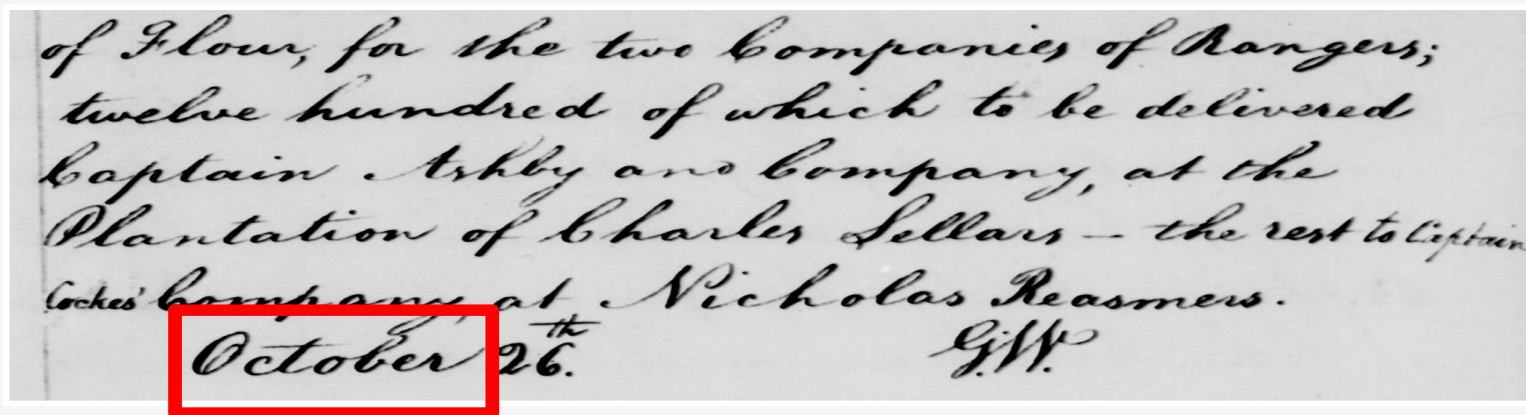 of Flour, for the two Companies of Rangers;
twelve hundred of which to be delivered
Captain Ashby and Company, at the
Plantation of Charles Sellars — the rest to Captain
Cockes' Company, at Nicholas Reasmers.
October 26th. G.W.